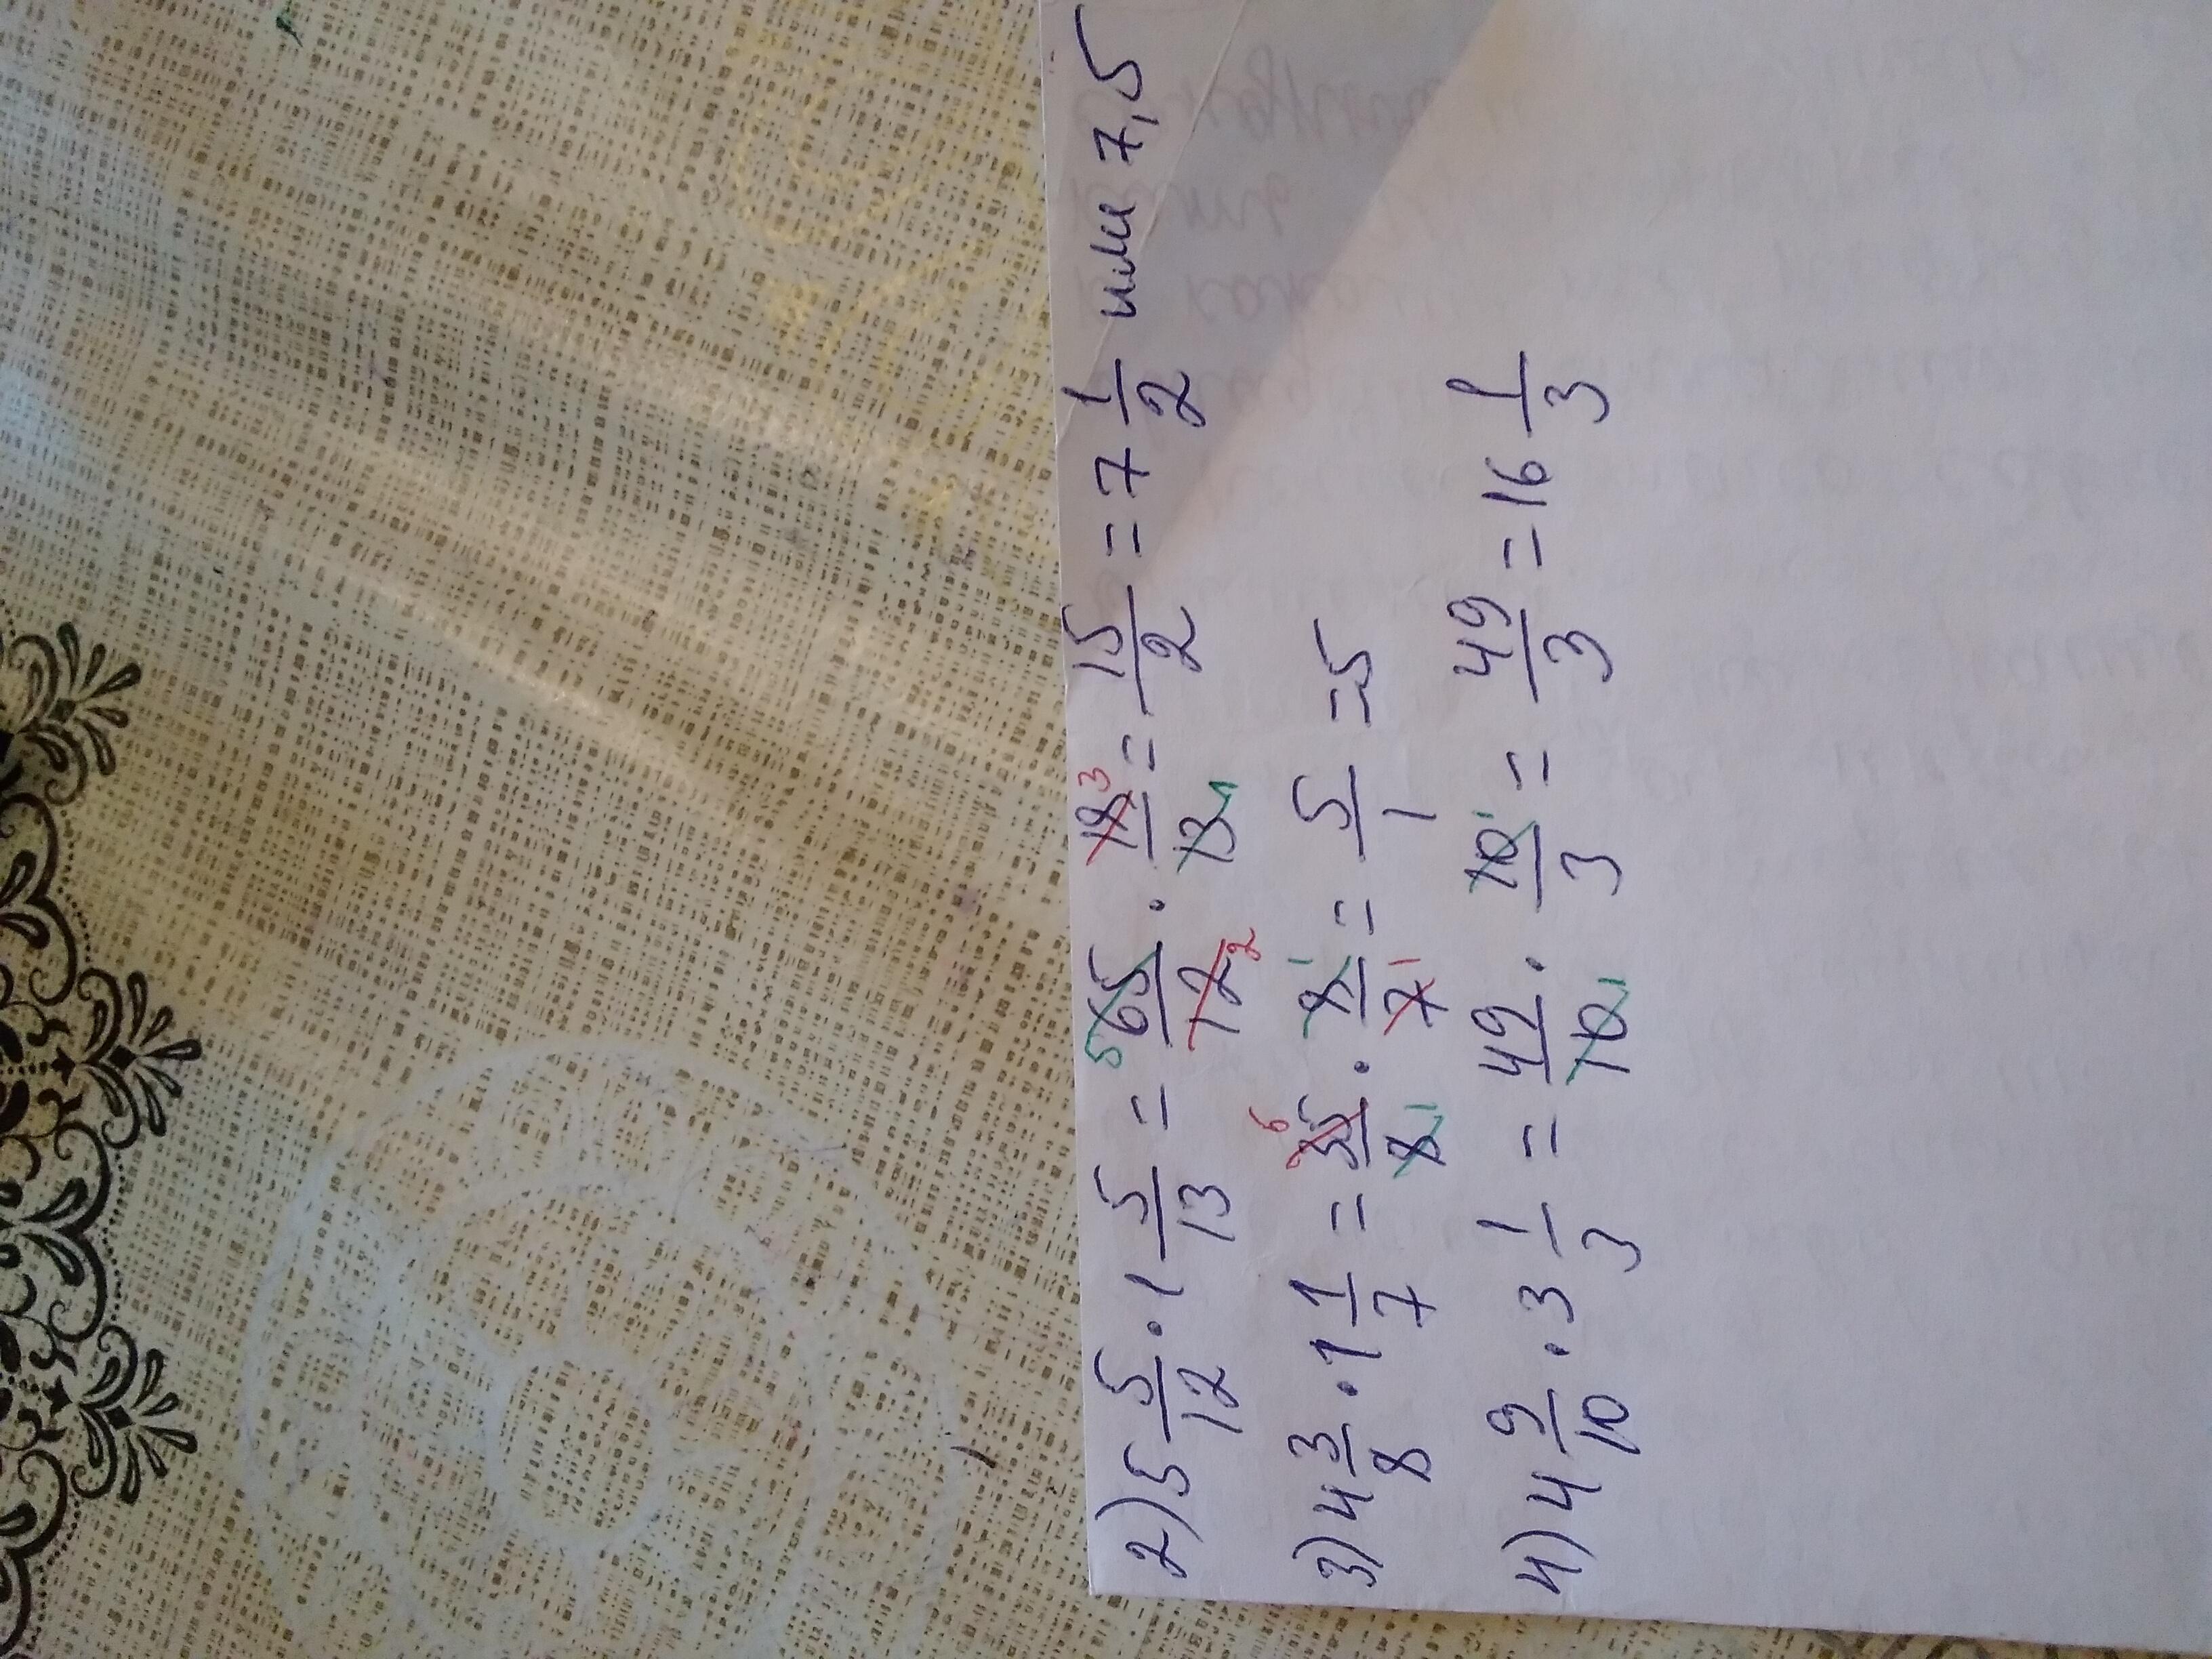 2) 5 5/12 · 1 5/13 = 65/12 · 18/13 = 15/2 = 7 1/2 или 7,5
3) 4 3/8 · 1 1/7 = 35/8 · 8/7 = 5/1 = 5
4) 4 9/10 · 3 1/3 = 49/10 · 10/3 = 49/3 = 16 1/3